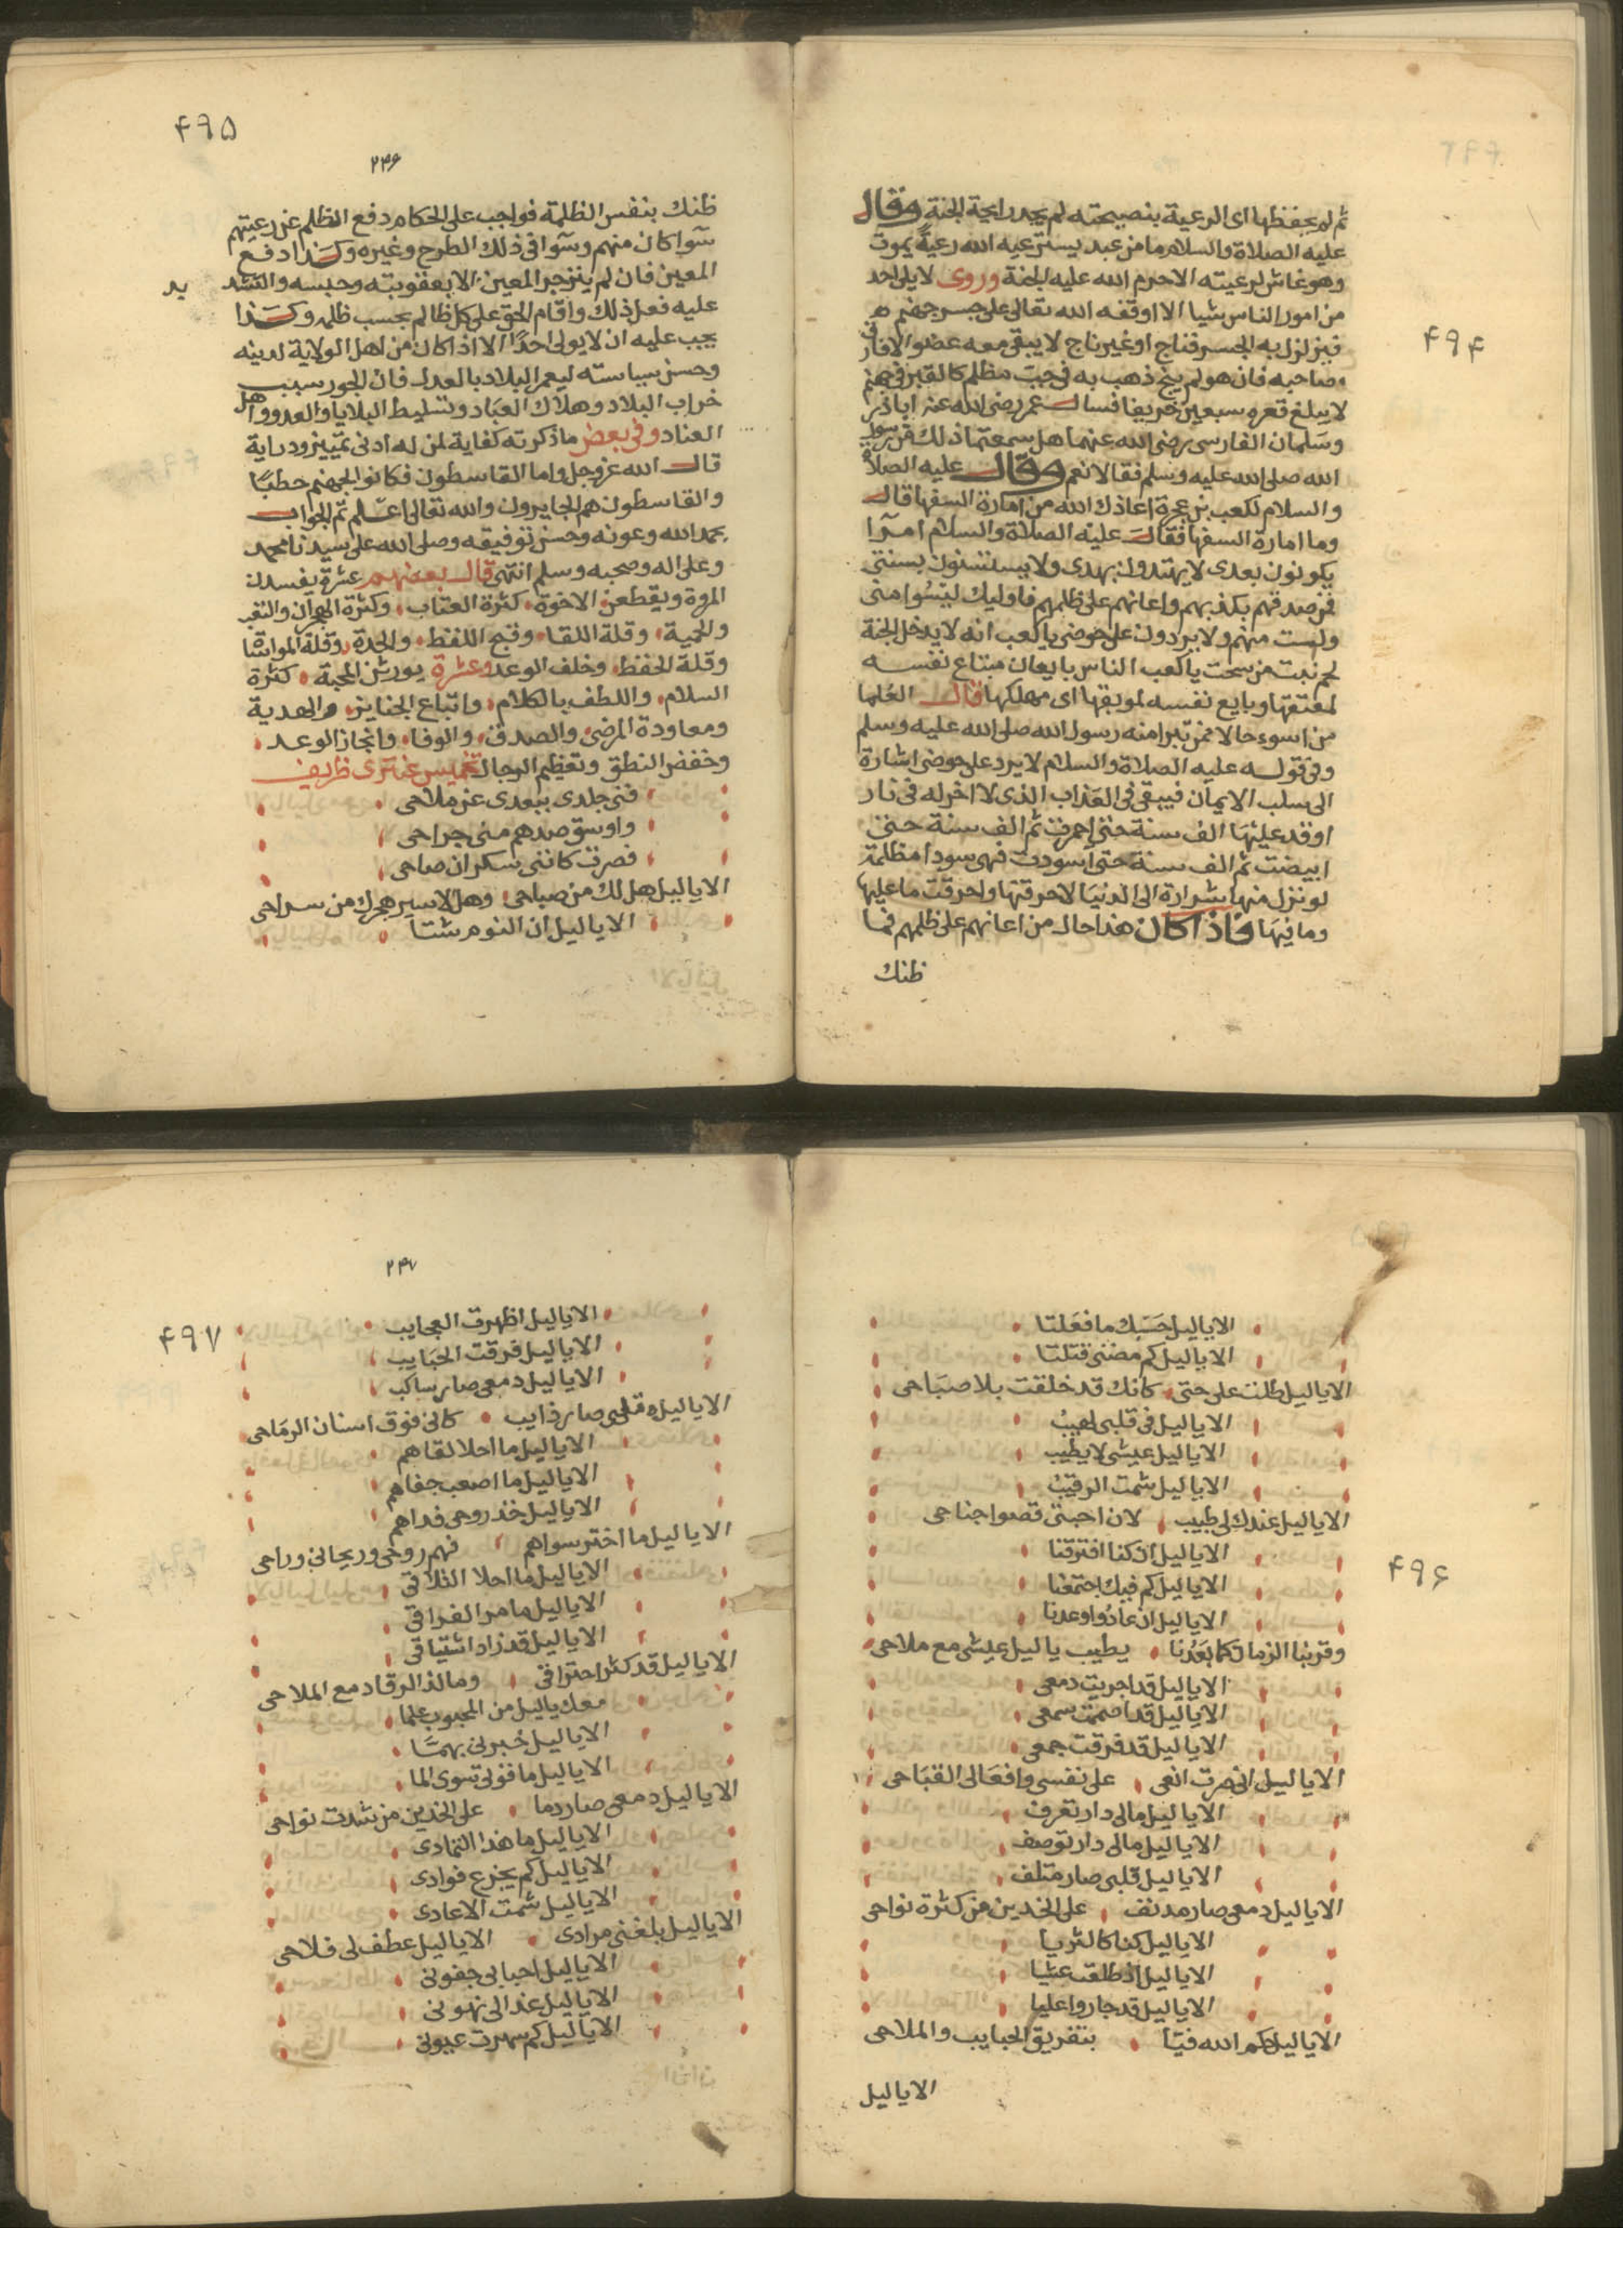 ۴۹۴
ثم لم يحفظها اى الرعية بنصيحته لم يجد رايحة الجنة وقال
عليه الصلاة والسلام ما من عبد يسترعيه الله رعية يموت
وهو غاش لرعيته الا حرم الله عليه الجنة وروى لا يلى احد
من امور الناس شيا الا اوقفه الله تعالى على جسر جهنم
فيزلزل به الجسر فناج او غير ناج لا يبقى معه عضو الا فارق
صاحبه فان هو لم ينج ذهب به فى جب مظلم كالقبر فى جهنم
لا يبلغ قعره سبعين خريفا فسال عمر رضى الله عنه اباذر
وسلمان الفارسى رضى الله عنهما هل سمعتما ذلك من رسول
الله صلى الله عليه وسلم فقالا نعم وقال عليه الصلاة
والسلام لكعب بن عجرة اعاذك الله من امارة السفها قال
وما امارة السفها فقال عليه الصلاة والسلام امرا
يكونون بعدى لا يهتدون بهدى ولا يستنون بسنتى
فمن صدقهم بكذبهم واعانهم على ظلمهم فاوليك ليسوا منى
ولست منهم ولا يردون على حوضى يا كعب انه لا يدخل الجنة
لحم نبت من سحت يا كعب الناس بايعان مبتاع نفسه
لمعتقها وبايع نفسه لموبقها اى مهلكها قال العلما
من اسوء حالا ممن تبرا منه رسول الله صلى الله عليه وسلم
وفى قوله عليه الصلاة والسلام لا يرد على حوضى اشارة
الى سلب الايمان فيبقى فى العذاب الذى لا اخر له فى نار
اوقد عليها الف سنة حتى احمرت ثم الف سنة حتى
ابيضت ثم الف سنة حتى اسودت فهى سودا مظلمة
لو نزل منها شرارة الى الدنيا لاحرقتها ولحرقت ما عليها
وما فيها فاذا كان هذا حال من اعانهم على ظلمهم فما
ظنك
۴۹۵
۲۴۶
ظنك بنفس الظلمة فواجب على الحكام دفع الظلم عن رعيتهم
سوا كان منهم وسوا فى ذلك الطرح وغيره وكذا دفع
المعين فان لم ينزجر المعين الا بعقوبته وحبسه والتشد يد
عليه فعل ذلك واقام الحق على كل ظالم بحسب ظلمه وكذا
يجب عليه ان لا يولى احدا الا اذا كان من اهل الولاية لدينه
وحسن سياسته ليعمر البلاد بالعدل فان الجور سبب
خراب البلاد وهلاك العباد وتسليط البلايا والعدو واهل
العناد وفى بعض ما ذكرته كفاية لمن له ادنى تمييز ودراية
قال الله عز وجل واما القاسطون فكانوا لجهنم حطبا
والقاسطون هم الجايرون والله تعالى اعلم تم الجواب
بحمد الله وعونه وحسن توفيقه وصلى الله على سيدنا محمد
وعلى اله وصحبه وسلم انتهى قال بعضهم عشرة يفسدن
المروة ويقطعن الاخوة كثرة العتاب وكثرة الهجران والتغير
والحمية وقلة اللقا وقبح اللفظ والحدة وقلة المواتاة
وقلة الحفظ وخلف الوعد وعشرة يورثن المحبة كثرة
السلام واللطف بالكلام واتباع الجنايز والهدية
ومعاودة المرضى والصدق والوفا وانجاز الوعد
وخفض النطق وتعظيم الرجال تخميس عنترى ظريف
فنى جلدى ببعدى عن ملاحى
واوسق صدهم منى جراحى
فصرت كاننى سكران صاحى
الا ياليل هل لك من صباحى وهل لاسير هجرك من سراحى
الا ياليل ان النوم شتا
الا ياليل حسبك ما فعلتا
الا ياليل كم مضنى قتلتا
الا ياليل طلت على حتى كانك قد خلقت بلا صباحى
الا ياليل فى قلبى لهيب
الا ياليل عيشى لا يطيب
الا ياليل شمت الرقيب
الا ياليل عندك لى طبيب لان احبتى قصوا جناحى
الا ياليل ان كنا افترقنا
۴۹۶
الا ياليل كم فيك اجتمعنا
الا ياليل ان عادوا وعدنا
وقربنا الزمان كما بعدنا يطيب ياليل عيشى مع ملاحى
الا ياليل قد اجريت دمعى
الا ياليل قد اصممت سمعى
الا ياليل قد فرقت جمعى
الا ياليل انى صرت انعى على نفسى وافعالى القباحى
الا ياليل مالى دار تعرف
الا ياليل مالى دار توصف
الا ياليل قلبى صار متلف
الا ياليل دمعى صار مدنف على الخدين من كثرة نواحى
الا ياليل كنا كالثريا
الا ياليل اذ طلعت عشيا
الا ياليل قد جاروا عليا
الا ياليل حكم الله فيا بتفريق الحبايب والملاحى
الا ياليل
۲۴۷
۴۹۷
الا ياليل اظهرت العجايب
الا ياليل فرقت الحبايب
الا ياليل دمعى صار ساكب
الا ياليل قلبى صار ذايب كانى فوق اسنان الرماحى
الا ياليل ما احلا لقاهم
الا ياليل ما اصعب جفاهم
الا ياليل خذ روحى فداهم
الا ياليل ما اختر سواهم فهم روحى وريحانى وراحى
الا ياليل ما احلا التلاقى
الا ياليل ما مر الفراقى
الا ياليل قد زاد اشتياقى
الا ياليل قد كثر احتراقى وما لذ الرقاد مع الملاحى
معك ياليل من المحبوب علما
الا ياليل خبرنى بهمسا
الا ياليل ما قوتى سوى الما
الا ياليل دمعى صار دما على الخدين من شدت نواحى
الا ياليل ما هذا التمادى
الا ياليل كم يجزع فوادى
الا ياليل شمت الاعادى
الا ياليل بلغنى مرادى الا ياليل عطف لى فلاحى
الا ياليل احبابى جفونى
الا ياليل عذالى نهونى
الا ياليل كم سهرت عيونى